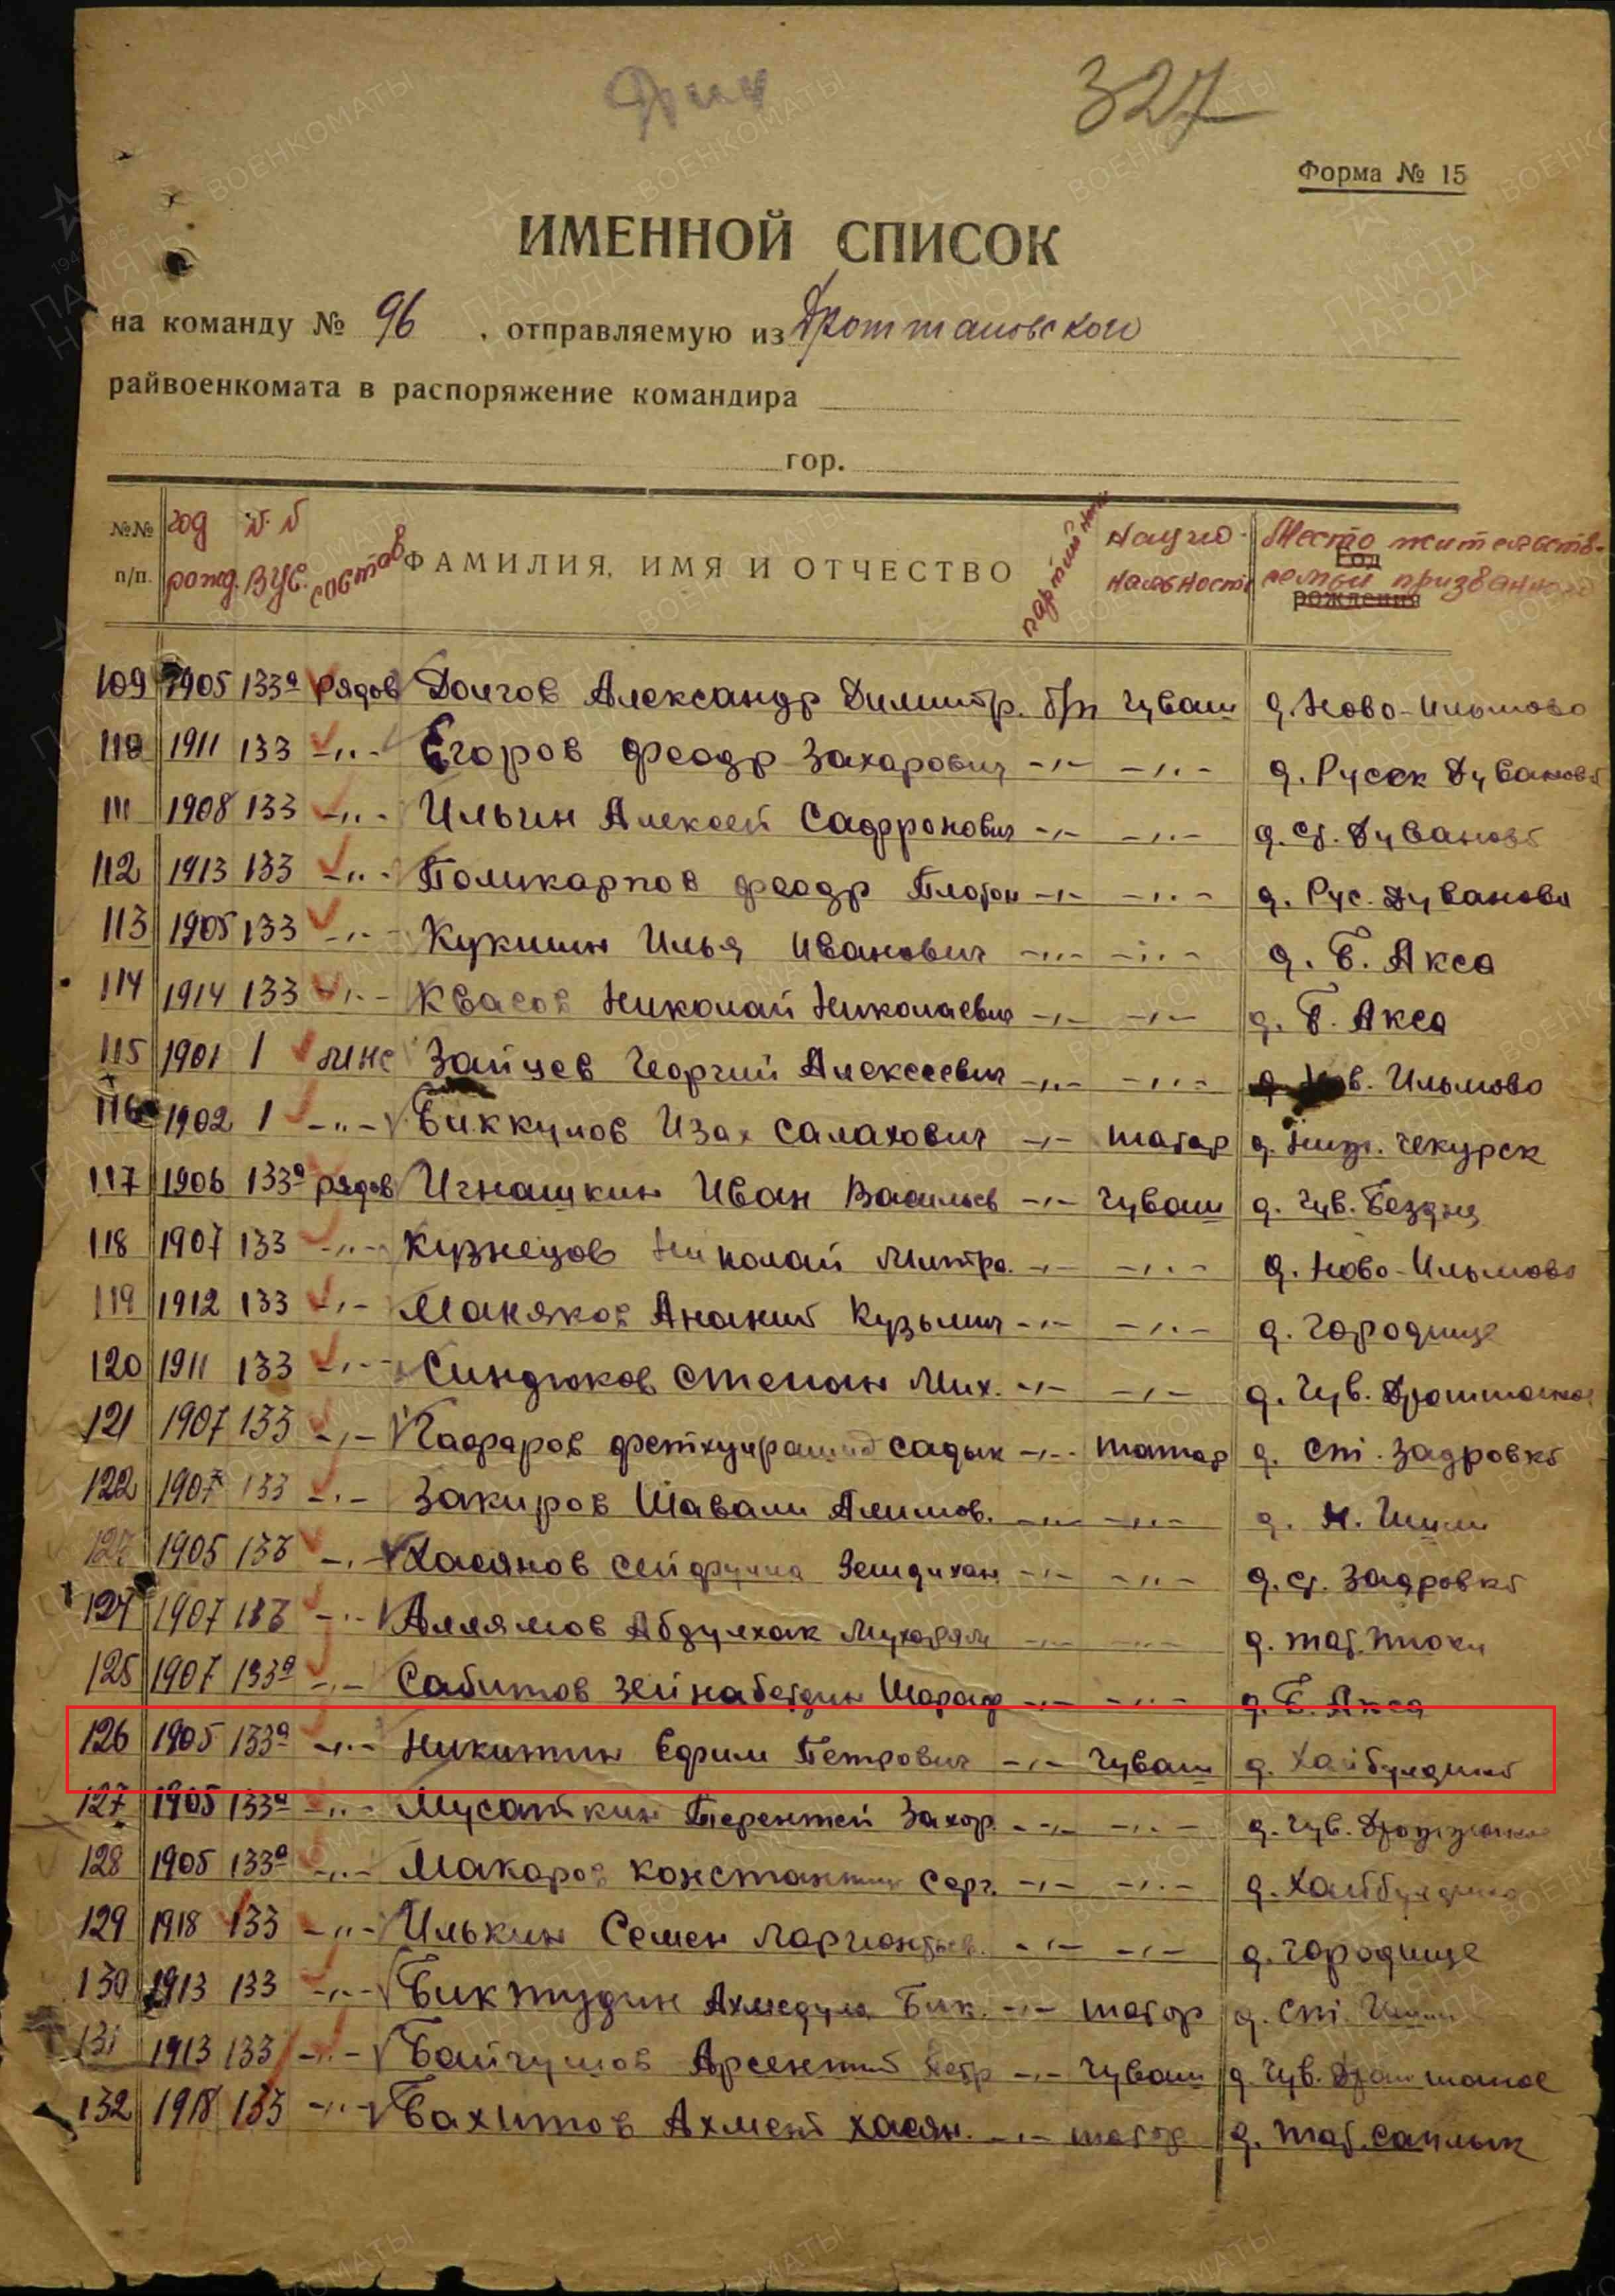 327
Форма № 15
ИМЕННОЙ СПИСОК
на команду № 96, отправляемую из Дрожжановского
райвоенкомата в распоряжение командира
гор.
№№ п/п. год рожд. №№ ВУС. состав ФАМИЛИЯ, ИМЯ И ОТЧЕСТВО партийность Нацио-нальность Место жительств. семьи призванного Год рождения
109 1905 133а рядов Долгов Александр Димитр. б/п чуваш д. Ново-Ильмово
110 1911 133 -"- Егоров Феодр Захарович -"- -"- д. Русск Дуваново
111 1908 133 -"- Ильин Алексей Сафронович -"- -"- д. Ст. Дуваново
112 1913 133 -"- Поликарпов Феодр Платон -"- -"- д. Рус. Дуваново
113 1905 133 -"- Кукшин Илья Иванович -"- -"- д. Б. Акса
114 1914 133 -"- Квасов Николай Николаевич -"- -"- д. Б. Акса
115 1901 1 Зайцев Георгий Алексеевич -"- -"- д. Нов. Ильмово
116 1902 1 -"- Биккулов Изах Салахович -"- татар д. Ниж. Чекурск
117 1906 133а рядов Игнашкин Иван Васильев -"- чуваш д. Чув. Бездна
118 1907 133 -"- Кузнецов Николай Митро. -"- -"- д. Ново-Ильмово
119 1912 133 -"- Маняков Ананий Кузьмич -"- -"- д. Городище
120 1911 133 -"- Синдюков Степан Мих. -"- -"- д. Чув. Дрожжаное
121 1907 133 -"- Гафаров Садык -"- татар д. Ст. Задровка
122 1907 133 -"- Закиров Шавали Алимов. -"- -"- д. Н. Шими
123 1905 133 -"- Хасянов -"- -"- д. Ст. Задровка
124 1907 133 -"- Аллямов Абдулхак Мухарям -"- -"- д. тат.
125 1907 133а -"- Сабитов Зейнабетдин Шараф -"- -"- д. Б. Акса
126 1905 133а -"- Никитин Ефим Петрович -"- чуваш д. Хайбулдино
127 1905 133а -"- Мусаткин Терентей Захар. -"- -"- д. Чув. Дрожжаное
128 1905 133а -"- Макаров Константин Серг. -"- -"- д. Хайбулдино
129 1918 133 -"- Илькин Семен Ларионтьев. -"- -"- д. Городище
130 1913 133 -"- Биктудин Ахмедула Бик. -"- татар д. Ст.
131 1913 133 -"- Байгулов Арсентий Петр -"- чуваш д. Чув. Дрожжаное
132 1918 133 -"- Бахитов Ахмет Хасян. -"- татар д. Тат.